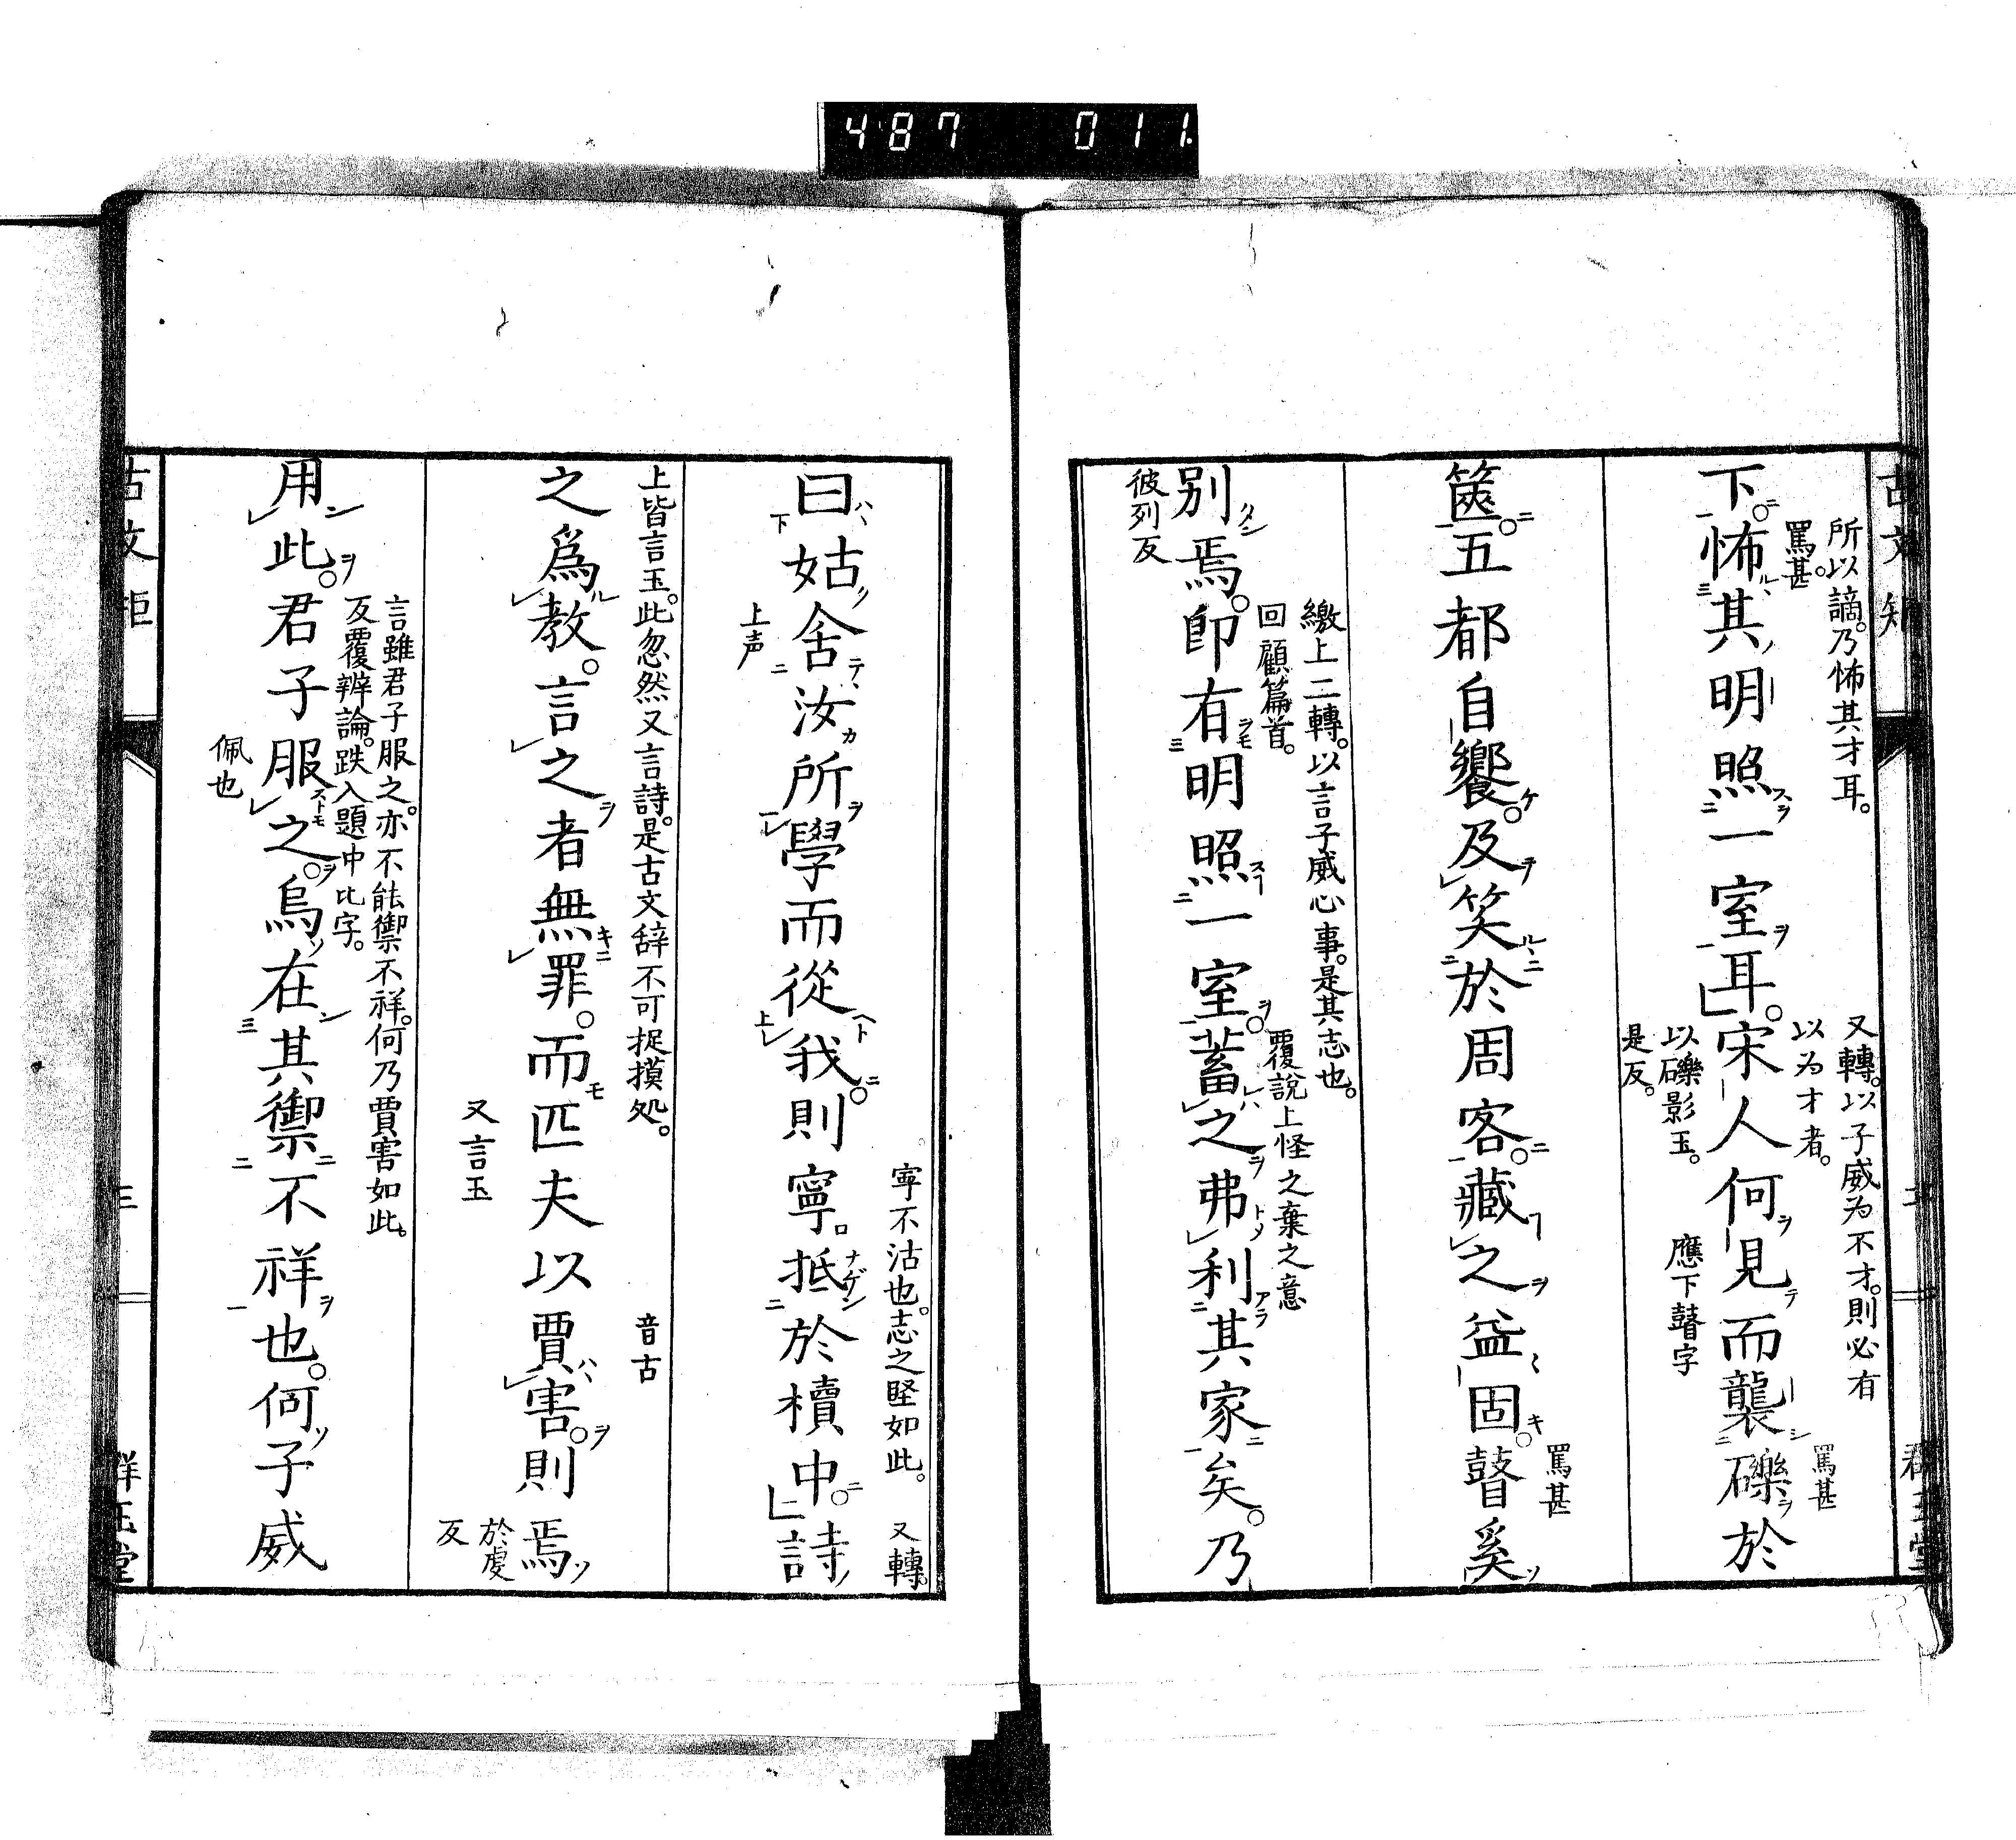 487 011
所以謫。乃怖其才耳。
罵甚。
又轉。以子威為不才。則必有
以為才者。
罵甚
下。怖其明照一室耳。宋人何見而襲礫於
以礫影玉。
是反。
應下瞽字
罵甚
篋。五都自饗。及笑於周客。藏之益固。瞽奚
繳上二轉。以言子威心事。是其志也。
回顧篇首。
覆說上怪之棄之意
別焉。即有明照一室。蓄之弗利其家矣。乃
彼列反
寧不沽也。志之堅如此。
又轉。
曰姑舍汝所學而從我。則寧。抵於櫝中。詩
上声
上皆言玉。此忽然又言詩。是古文辞不可捉摸処。
音古
之為教。言之者無罪。而匹夫以賈害。則焉
又言玉
於虔
反
言雖君子服之。亦不能禦不祥。何乃賈害如此。
反覆辨論。跌入題中比字。
用此。君子服之。烏在其禦不祥也。何子威
佩也
古文矩
三
群玉堂